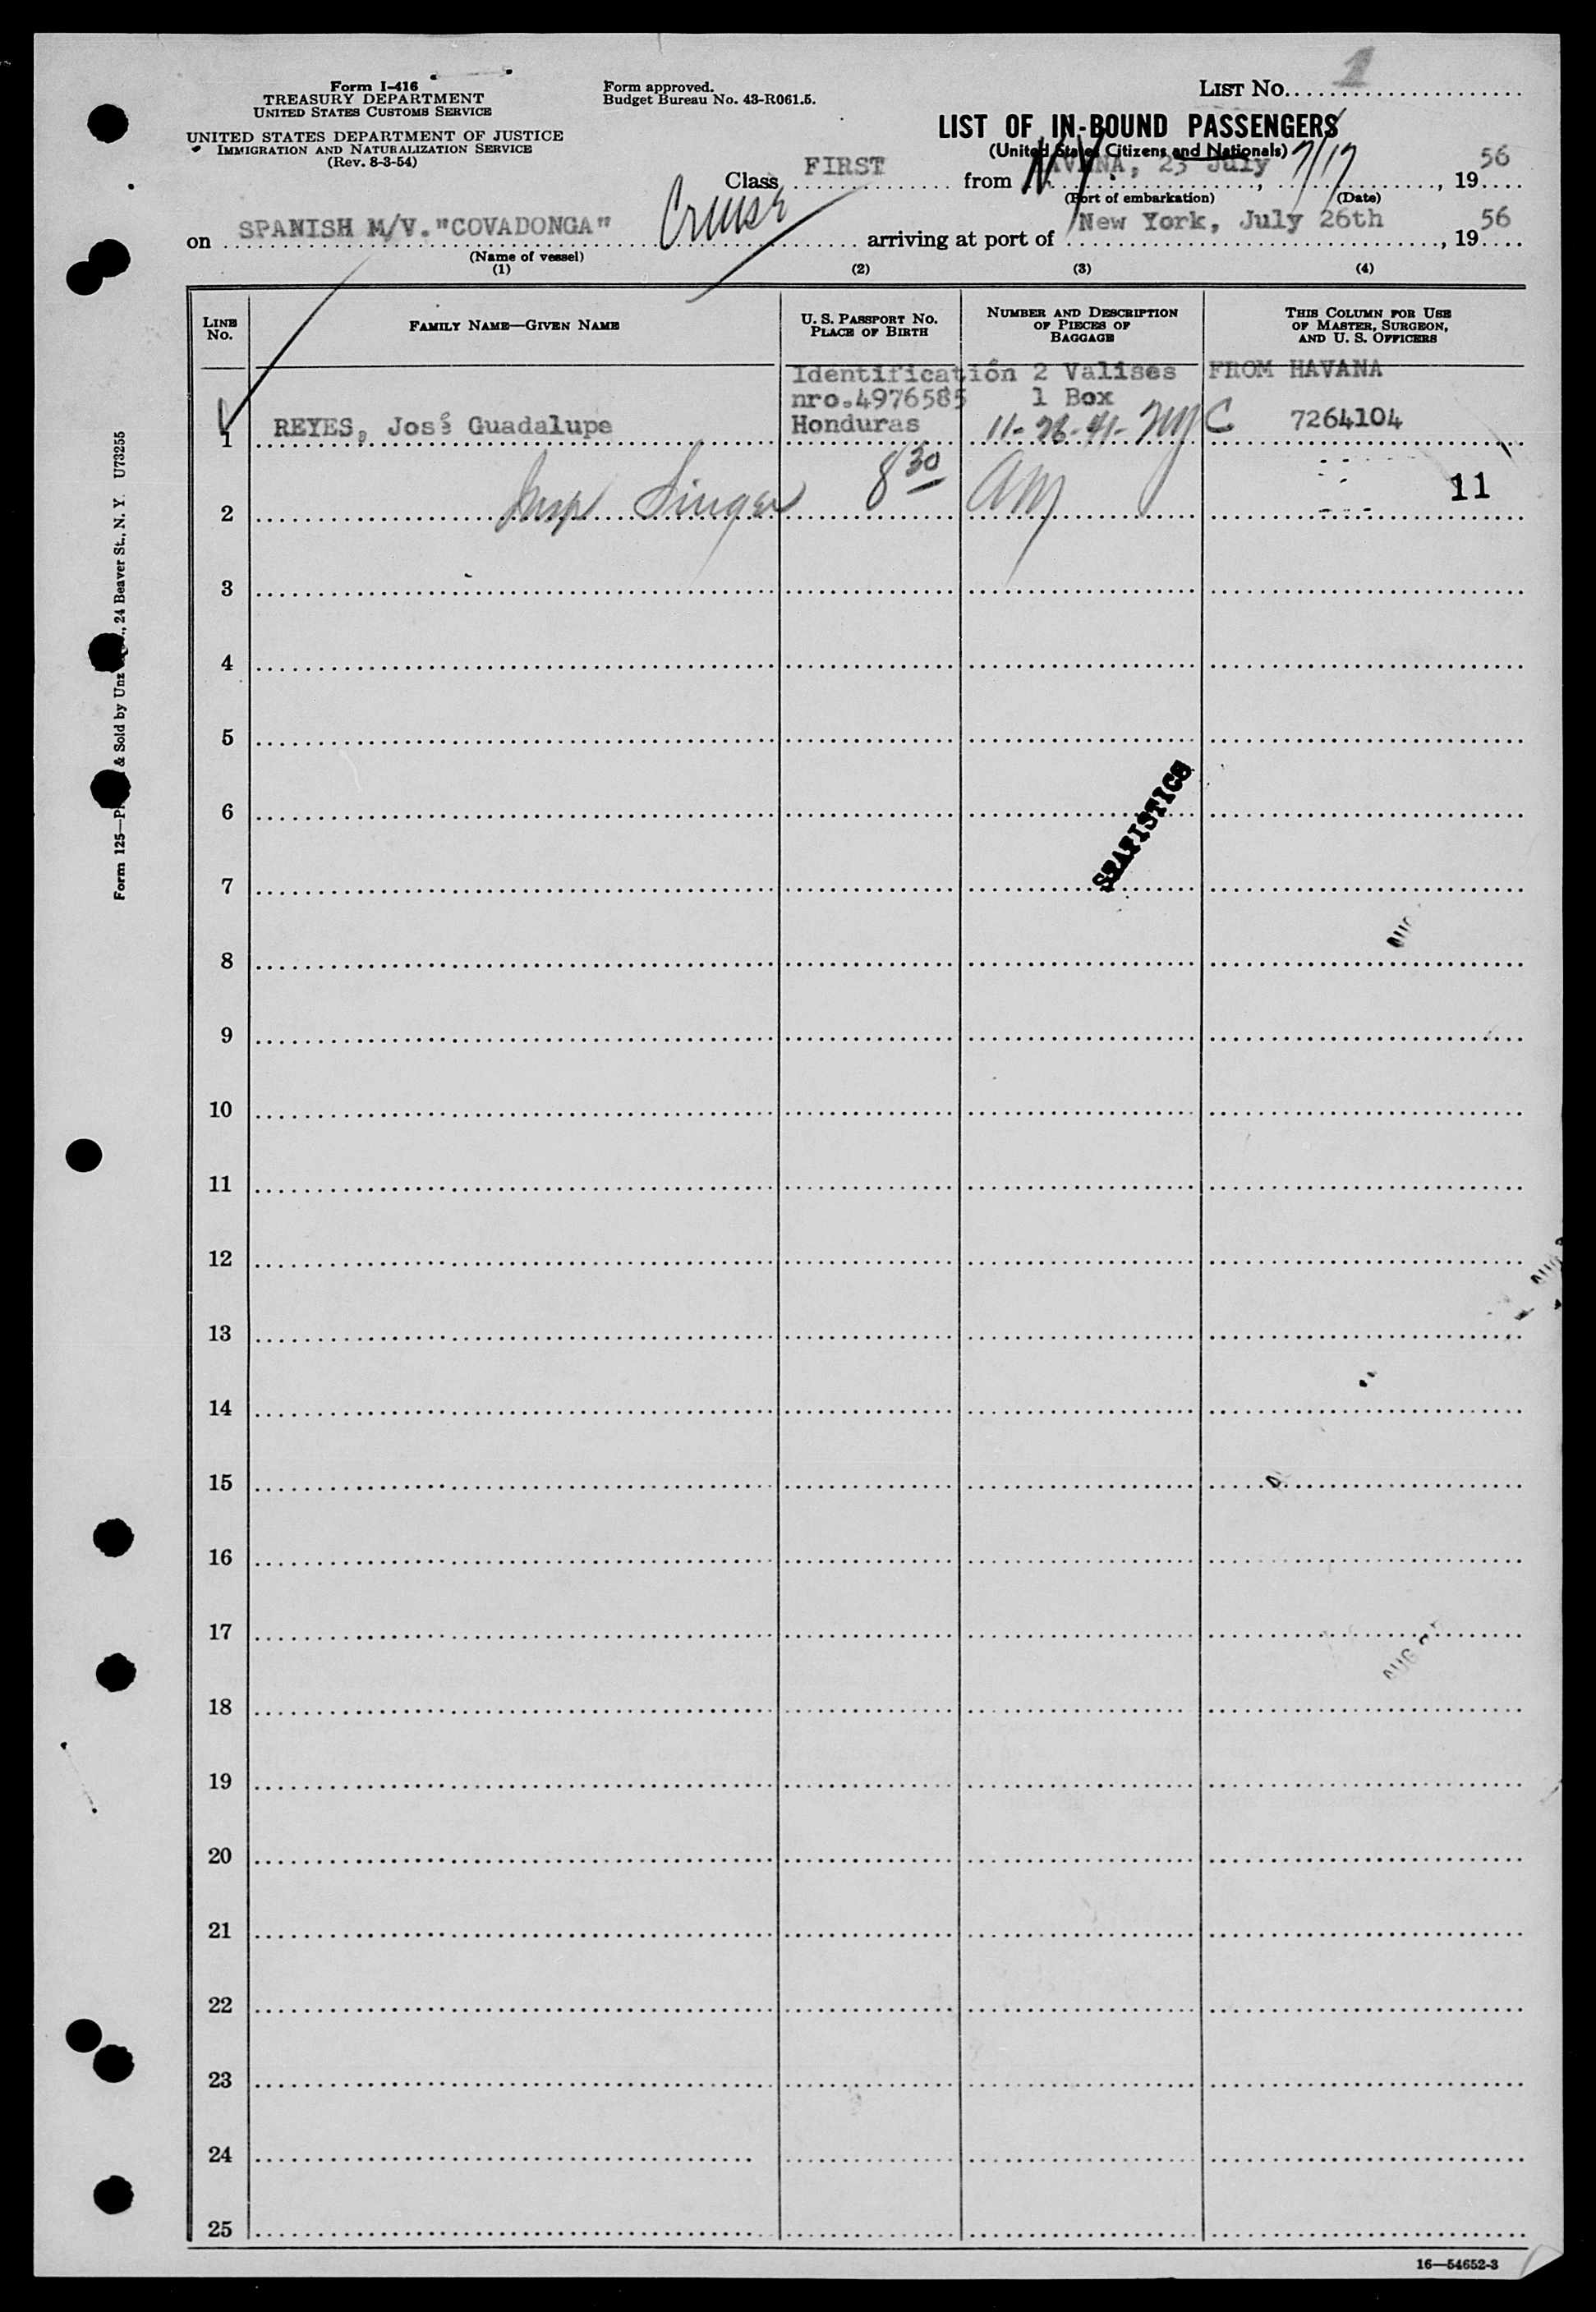 Form I-416
TREASURY DEPARTMENT
UNITED STATES CUSTOMS SERVICE
UNITED STATES DEPARTMENT OF JUSTICE
IMMIGRATION AND NATURALIZATION SERVICE
(Rev. 8-3-54)
Form approved.
Budget Bureau No. 43-R061.5.
LIST NO. 1
LIST OF IN-BOUND PASSENGERS
(United States Citizens and Nationals)
Class FIRST from HAVANA, 23 July N Y 7/17, 1956
(Port of embarkation) (Date)
on SPANISH M/V. "COVADONGA" Cruise arriving at port of New York, July 26th, 1956
(Name of vessel)
(1) (2) (3) (4)
LINE NO.
FAMILY NAME—GIVEN NAME
U. S. PASSPORT NO. PLACE OF BIRTH
NUMBER AND DESCRIPTION OF PIECES OF BAGGAGE
THIS COLUMN FOR USE OF MASTER, SURGEON, AND U. S. OFFICERS
Identificatión 2 Valises FROM HAVANA
nro.4976585 1 Box
1 REYES, José Guadalupe Honduras 11-26-41- NY C 7264104
2 Insp Singer 8 30 AM 11
3
4
5
6
STATISTICS
7
8
9
10
11
12
13
14
15
16
17
AUG
18
19
20
21
22
23
24
25
16—54652-3
Form 125—P & Sold by Unz , 24 Beaver St., N. Y. U73255